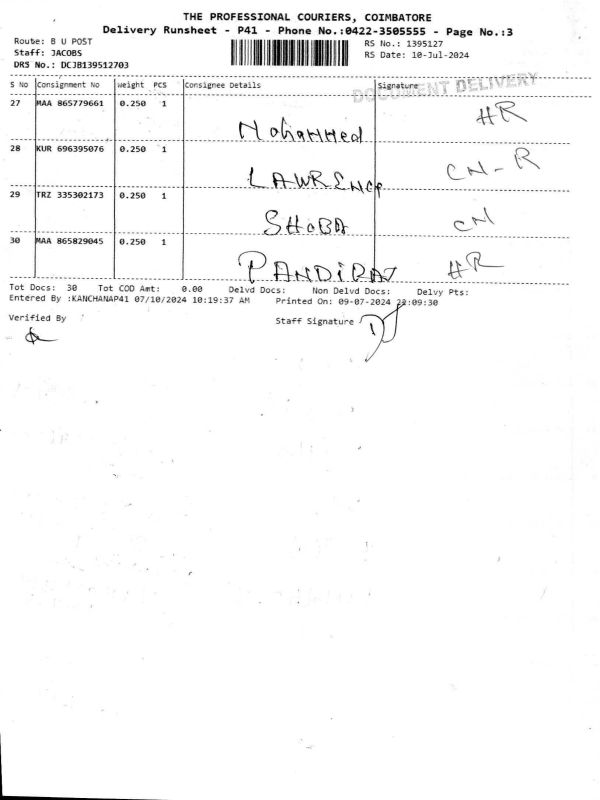 THE PROFESSIONAL COURIERS, COIMBATORE
Delivery Runsheet - P41 - Phone No.:0422-3505555 - Page No.:3
Route: B U POST
RS No.: 1395127
Staff: JACOBS
RS Date: 10-Jul-2024
DRS No.: DCJB139512703
S No Consignment No Weight PCS Consignee Details Signature
DOCUMENT DELIVERY
27 MAA 865779661 0.250 1 HR
Mohammed
28 KUR 696395076 0.250 1 CN-R
LAWRENCE
29 TRZ 335302173 0.250 1 CN
SHOBA
30 MAA 865829045 0.250 1 HR
PANDIRAJ
Tot Docs: 30 Tot COD Amt: 0.00 Delvd Docs: Non Delvd Docs: Delvy Pts:
Entered By :KANCHANAP41 07/10/2024 10:19:37 AM Printed On: 09-07-2024 :09:30
Verified By Staff Signature